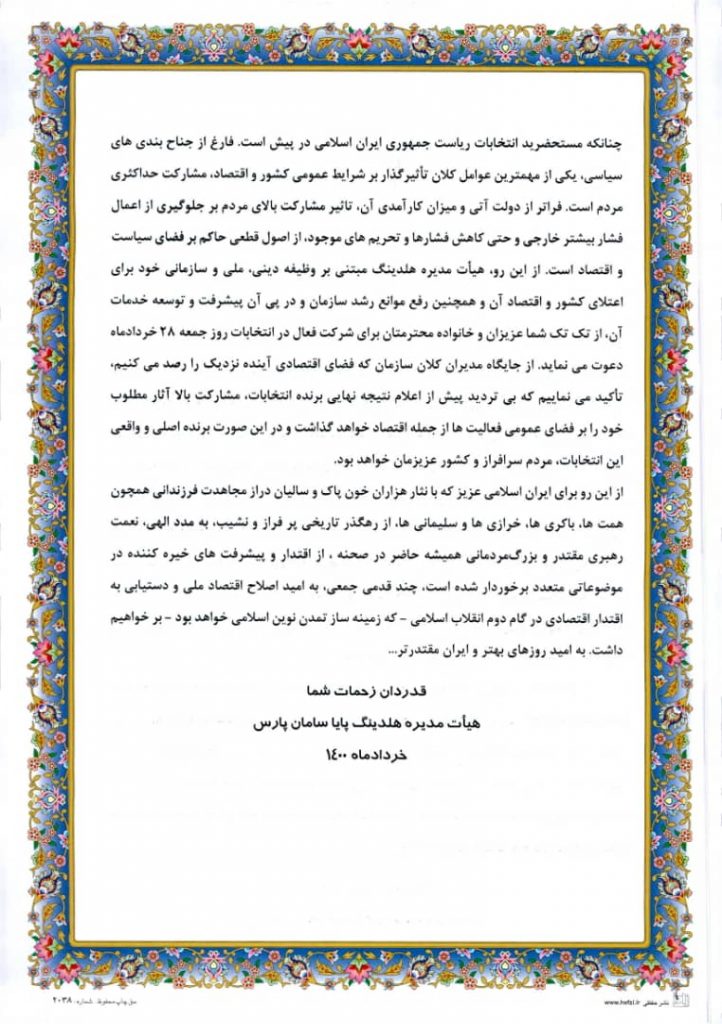 چنانکه مستحضرید انتخابات ریاست جمهوری ایران اسلامی در پیش است. فارغ از جناح بندی های
سیاسی، یکی از مهمترین عوامل کلان تأثیرگذار بر شرایط عمومی کشور و اقتصاد، مشارکت حداکثری
مردم است. فراتر از دولت آتی و میزان کارآمدی آن، تاثیر مشارکت بالای مردم بر جلوگیری از اعمال
فشار بیشتر خارجی و حتی کاهش فشارها و تحریم های موجود، از اصول قطعی حاکم بر فضای سیاست
و اقتصاد است. از این رو، هیأت مدیره هلدینگ مبتنی بر وظیفه دینی، ملی و سازمانی خود برای
اعتلای کشور و اقتصاد آن و همچنین رفع موانع رشد سازمان و در پی آن پیشرفت و توسعه خدمات
آن، از تک تک شما عزیزان و خانواده محترمتان برای شرکت فعال در انتخابات روز جمعه ۲۸ خردادماه
دعوت می نماید. از جایگاه مدیران کلان سازمان که فضای اقتصادی آینده نزدیک را رصد می کنیم،
تأکید می نماییم که بی تردید پیش از اعلام نتیجه نهایی برنده انتخابات، مشارکت بالا آثار مطلوب
خود را بر فضای عمومی فعالیت ها از جمله اقتصاد خواهد گذاشت و در این صورت برنده اصلی و واقعی
این انتخابات، مردم سرافراز و کشور عزیزمان خواهد بود.
از این رو برای ایران اسلامی عزیز که با نثار هزاران خون پاک و سالیان دراز مجاهدت فرزندانی همچون
همت ها، باکری ها، خرازی ها و سلیمانی ها، از رهگذر تاریخی پر فراز و نشیب، به مدد الهی، نعمت
رهبری مقتدر و بزرگ‌مردمانی همیشه حاضر در صحنه ، از اقتدار و پیشرفت های خیره کننده در
موضوعاتی متعدد برخوردار شده است، چند قدمی جمعی، به امید اصلاح اقتصاد ملی و دستیابی به
اقتدار اقتصادی در گام دوم انقلاب اسلامی - که زمینه ساز تمدن نوین اسلامی خواهد بود - بر خواهیم
داشت. به امید روزهای بهتر و ایران مقتدرتر...
قدردان زحمات شما
هیأت مدیره هلدینگ پایا سامان پارس
خردادماه ۱۴۰۰
نشر حفظی www.hefzi.ir
حق چاپ محفوظ . شماره: ۲۰۳۸